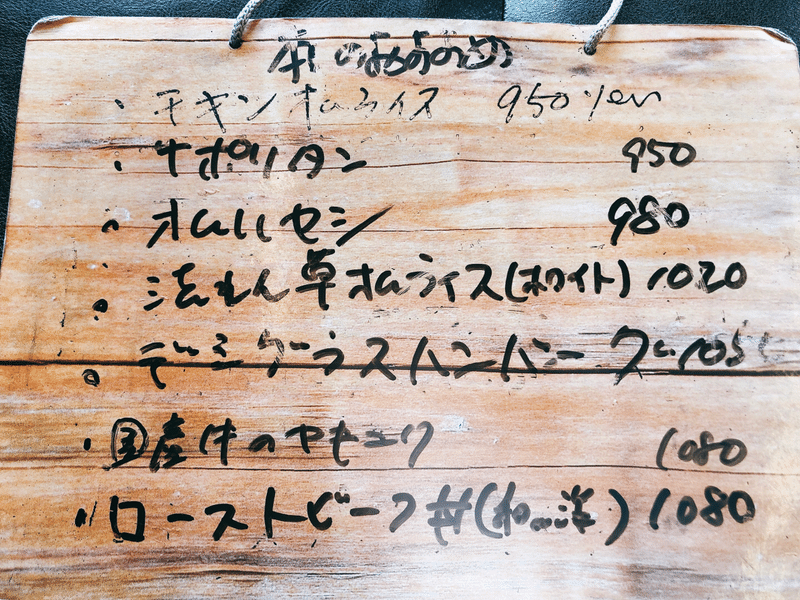 のおすすめ
・チキンオムライス 950yen
・ナポリタン 950
・オムハヤシ 980
・法れん草オムライス(ホワイト) 1020
・デミグラスハンバーグ 105
・国産牛のヤキニク 1080
・ローストビーフ丼(和or洋) 1080